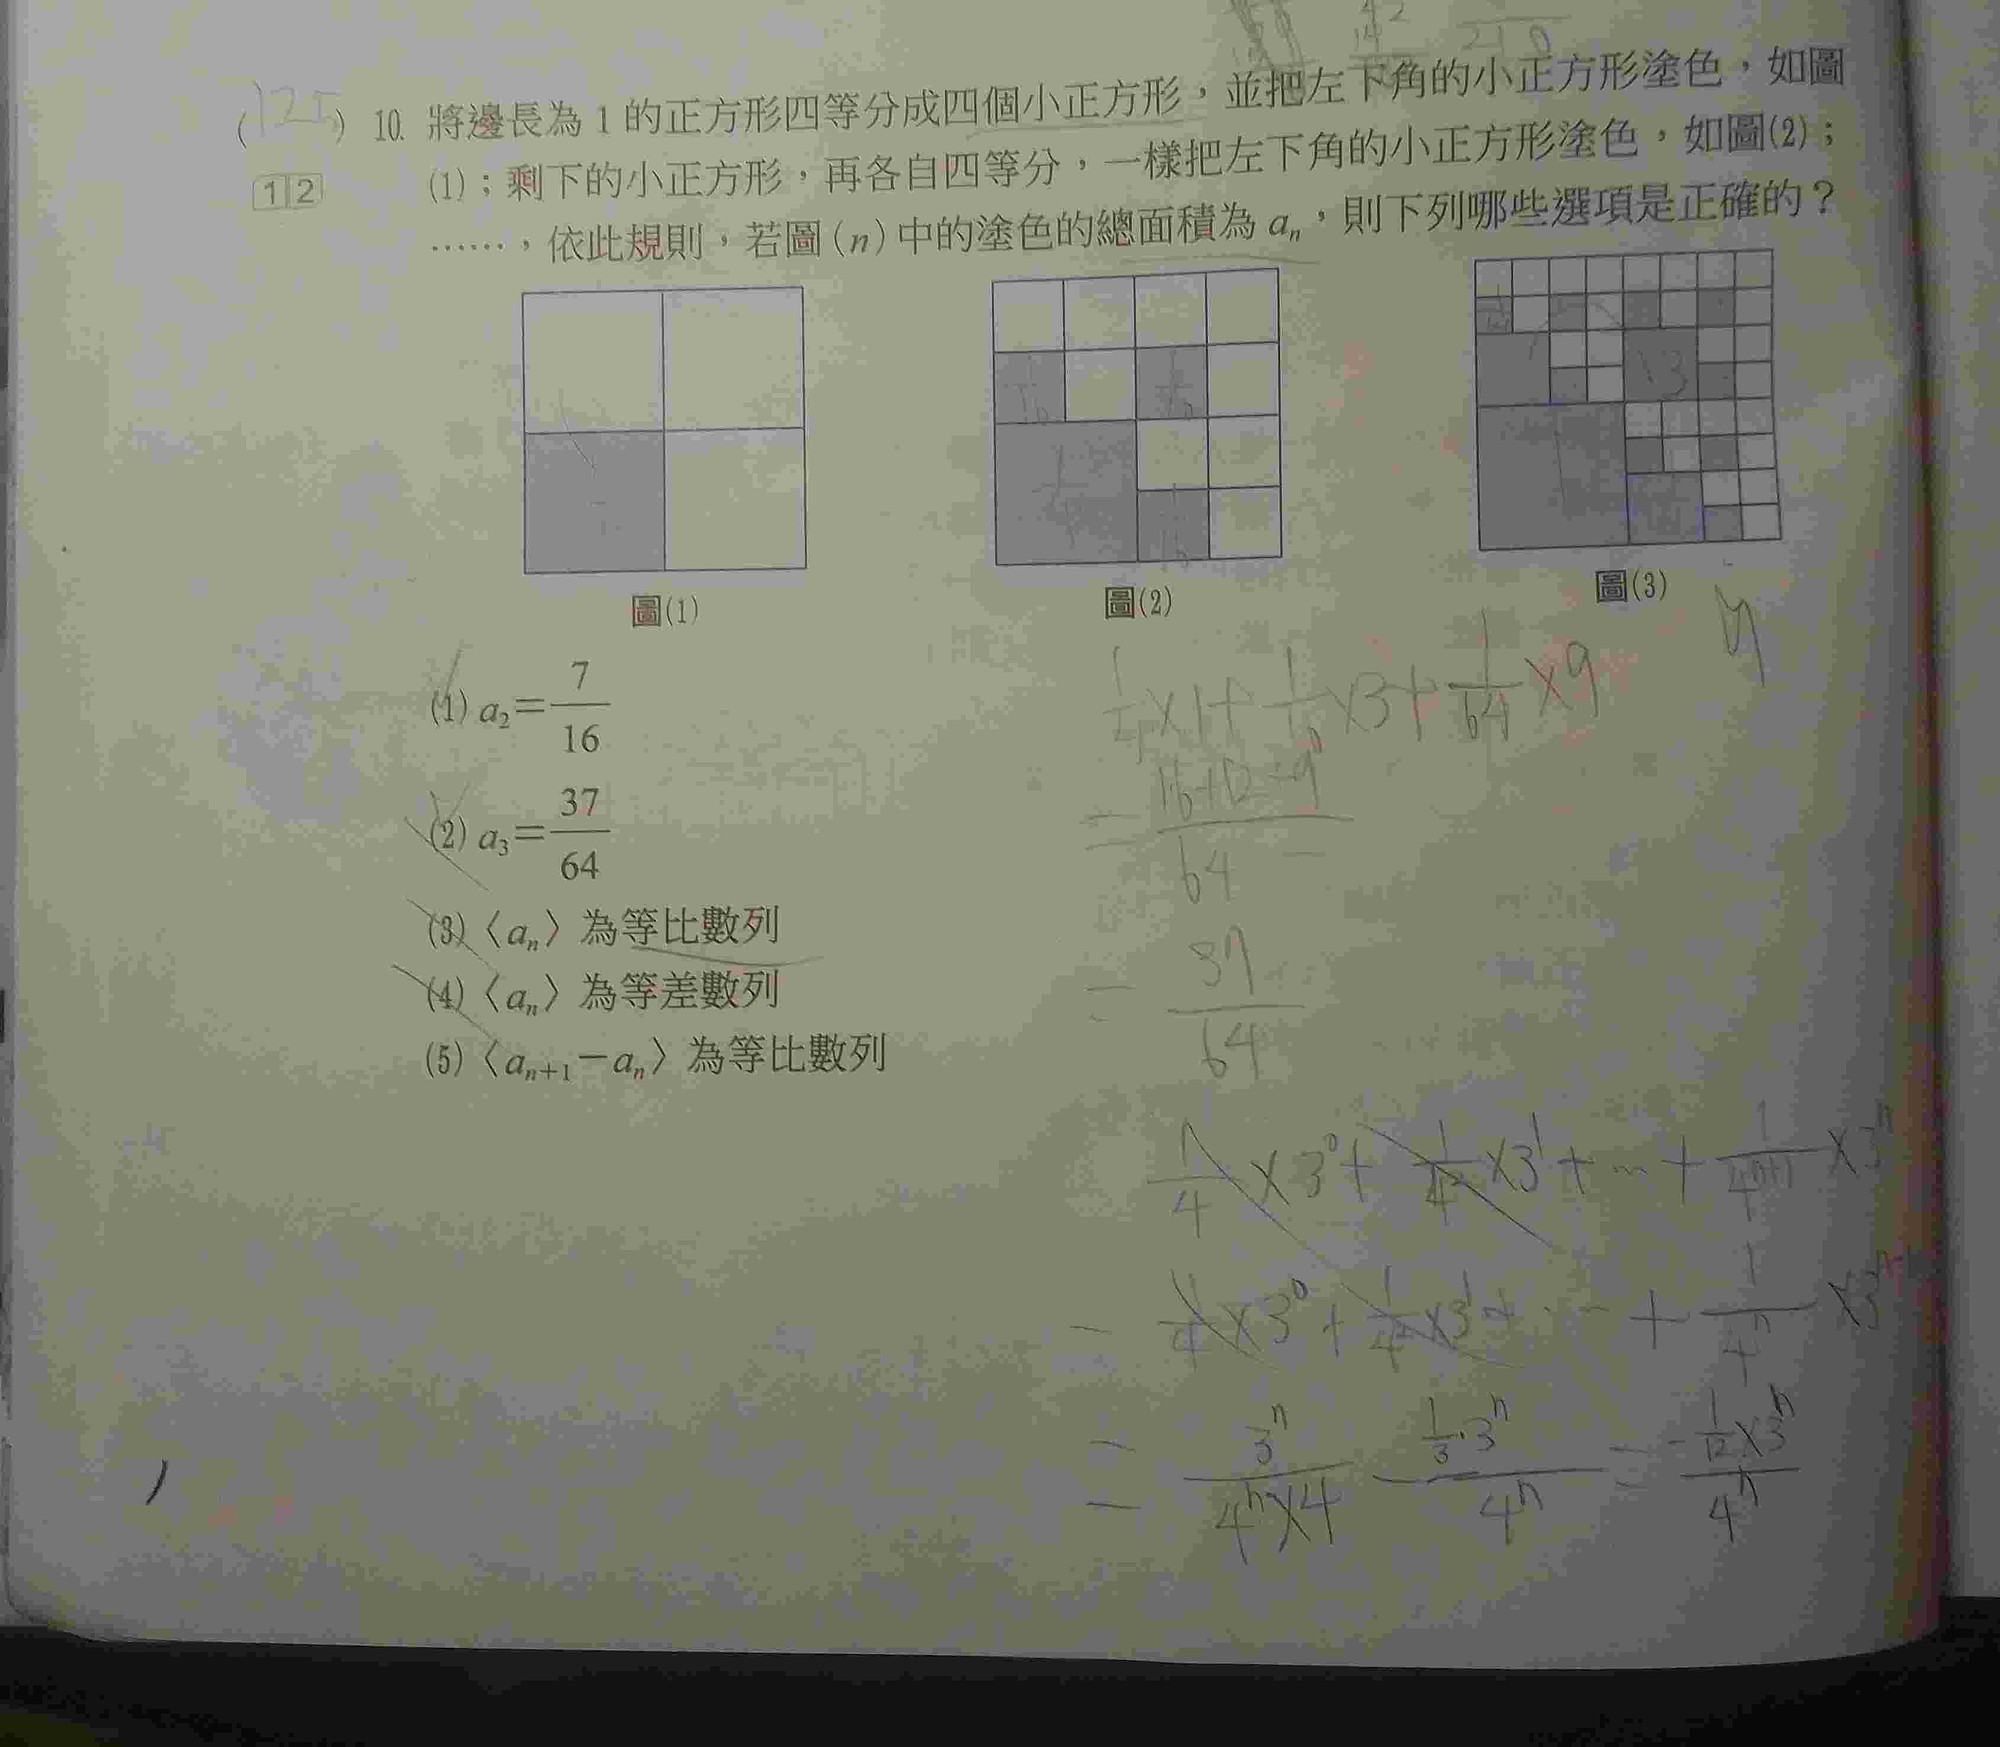 42
14
210
(125) 10. 將邊長為 1 的正方形四等分成四個小正方形，並把左下角的小正方形塗色，如圖
12 (1)；剩下的小正方形，再各自四等分，一樣把左下角的小正方形塗色，如圖(2)；
……，依此規則，若圖(n)中的塗色的總面積為 aₙ，則下列哪些選項是正確的？
圖(1) 圖(2) 圖(3)
(1) a₂=7/16
(2) a₃=37/64
(3)〈aₙ〉為等比數列
(4)〈aₙ〉為等差數列
(5)〈aₙ₊₁－aₙ〉為等比數列
1/4×1+1/16×3+1/64×9
=16+12+9/64
=37/64
1/4×3⁰+1/4²×3¹+…+1/4ⁿ⁺¹×3ⁿ
－1/4×3⁰+1/4²×3¹+…+1/4ⁿ×3ⁿ⁻¹
=3ⁿ/4ⁿ×4－1/3·3ⁿ/4ⁿ=-1/12×3ⁿ/4ⁿ